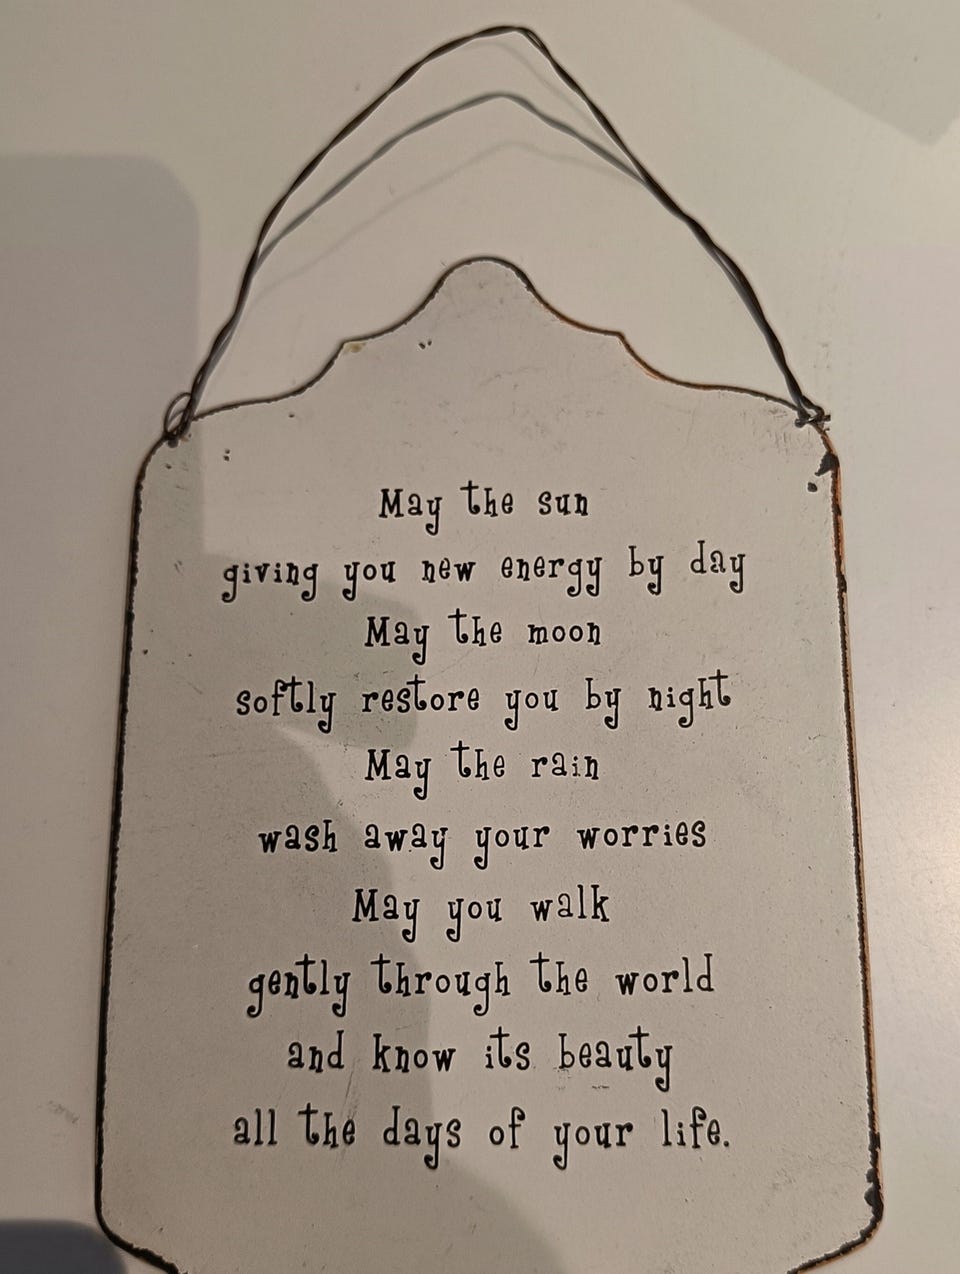 May the sun
giving you new energy by day
May the moon
softly restore you by night
May the rain
wash away your worries
May you walk
gently through the world
and know its beauty
all the days of your life.